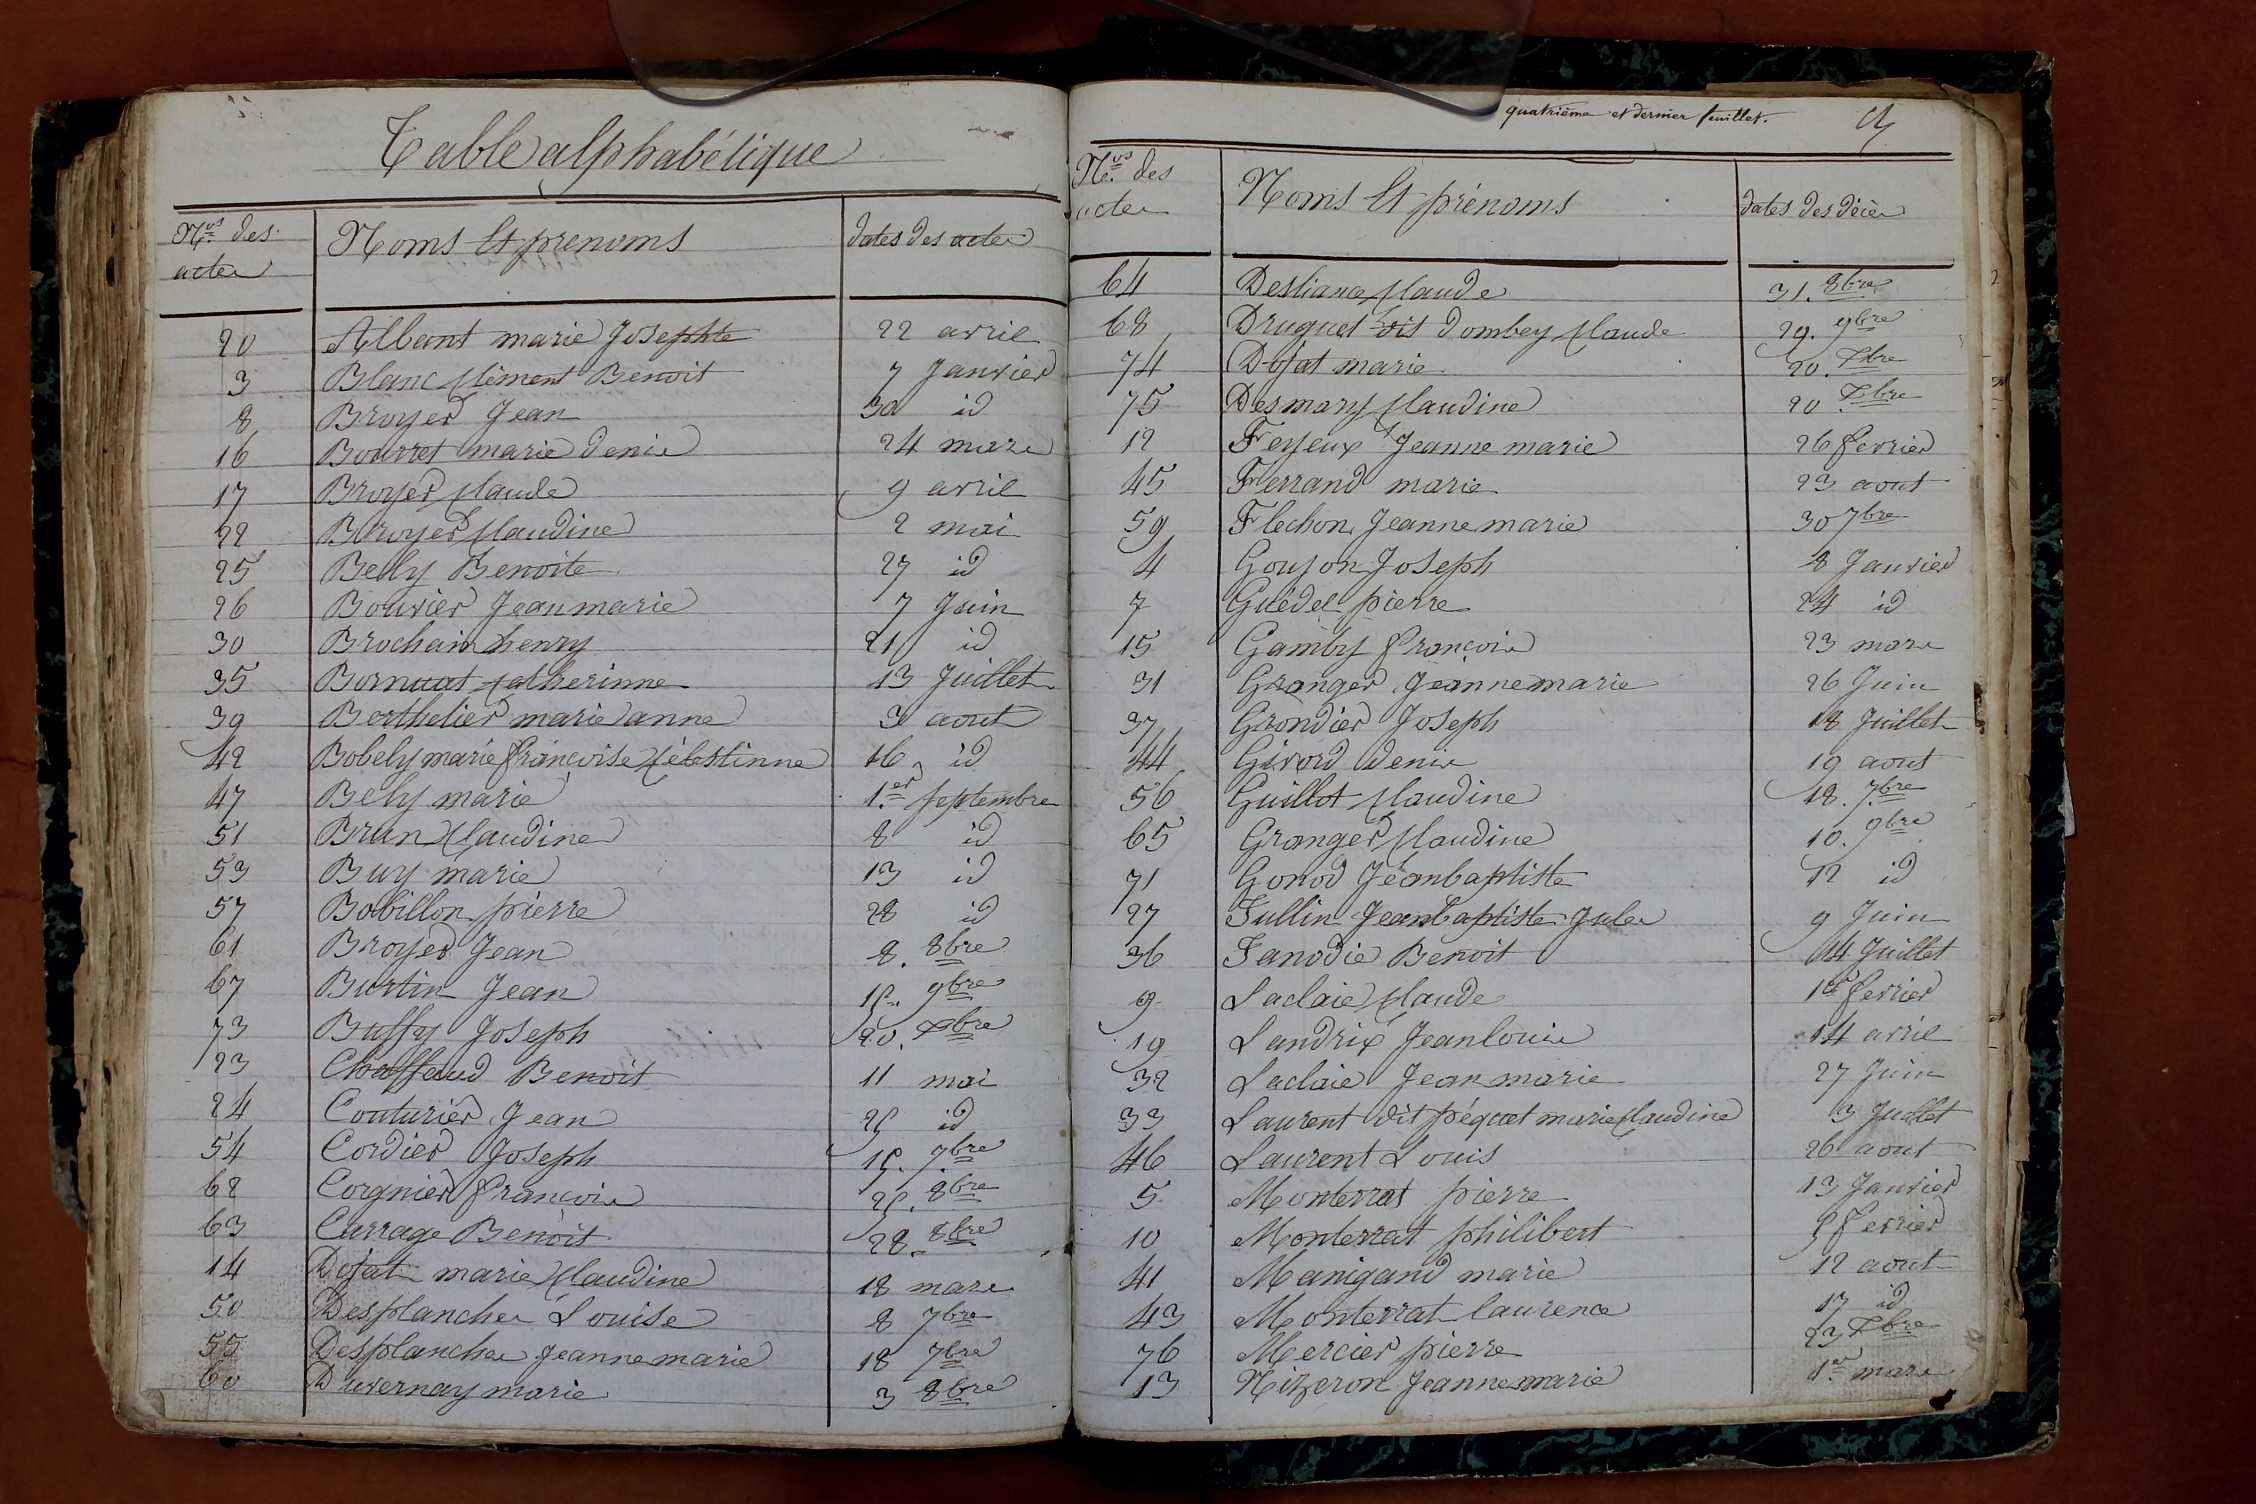 Table alphabétique
Nos des actes Noms Et prenoms dates des actes
20 Albant marie Josephte 22 avril
3 Blanc Clément Benoit 7 Janvier
8 Broyer Jean 30 id
16 Bourret marie denis 24 mars
17 Broyer Claude 9 avril
22 Broyer Claudine 2 mai
25 Bely Benoite 27 id
26 Bouvier Jean marie 7 Juin
30 Brochain henry 21 id
35 Bornuat Catherinne 13 Juillet
39 Berthelier marie anne 3 aout
42 Bobely marie françoise Célestinne 16 id
47 Bely marie 1.er septembre
51 Brun Claudine 8 id
53 Buy marie 13 id
57 Bobillon pierre 28 id
61 Broyer Jean 8. 8bre
67 Burtin Jean 15. 9bre
73 Buffy Joseph 20. Xbre
23 Chaffaud Benoit 11 mai
24 Couturier Jean 25 id
54 Cordier Joseph 15. 7bre
62 Corgnier françois 25. 8bre
63 Carrage Benoit 28. 8bre
14 Dojat marie Claudine 18 mars
50 Desplanches Louise 8 7bre
55 Desplanches Jeanne marie 18 7bre
60 Duvernay marie 3 8bre
quatrième et dernier feuillet.
Nos des actes Noms Et prénoms dates des décès
64 Desliance Claude 31. 8bre
68 Druguet dit Dombey Claude 29. 9bre
74 Dojat marie 20. Xbre
75 Desmary Claudine 20 Xbre
12 Feyeux Jeanne marie 26 fevrier
45 Ferrand marie 23 aout
59 Flechon Jeanne marie 30 7bre
4 Goujon Joseph 8 Janvier
7 Guédel pierre 24 id
15 Gamby françois 23 mars
31 Granger Jeanne marie 26 Juin
37 Grondier Joseph 18 Juillet
44 Girord denis 19 aout
56 Guillot Claudine 18. 7bre
65 Granger Claudine 10. 9bre
71 Gonod Jean baptiste 12 id
27 Jullin Jean baptiste Jules 9 Juin
36 Janodie Benoit 14 Juillet
9 Laclaie Claude 1er fevrier
19 Landrix Jean louis 14 avril
32 Laclaie Jean marie 27 Juin
33 Laurent dit péquet marie Claudine 3 Juillet
46 Laurent Louis 26 aout
5 Monterrat pierre 13 Janvier
10 Monterrat philibert 5 fevrier
41 Manigand marie 12 aout
43 Monterrat laurence 17 id
76 Mercier pierre 23 Xbre
13 Nizeron Jeanne marie 1er mars